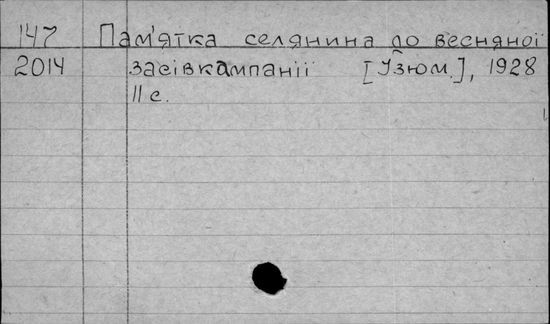 147 Пам'ятка селянина до весняної
2014 засівкампанії [Ізюм.], 1928
11 с.